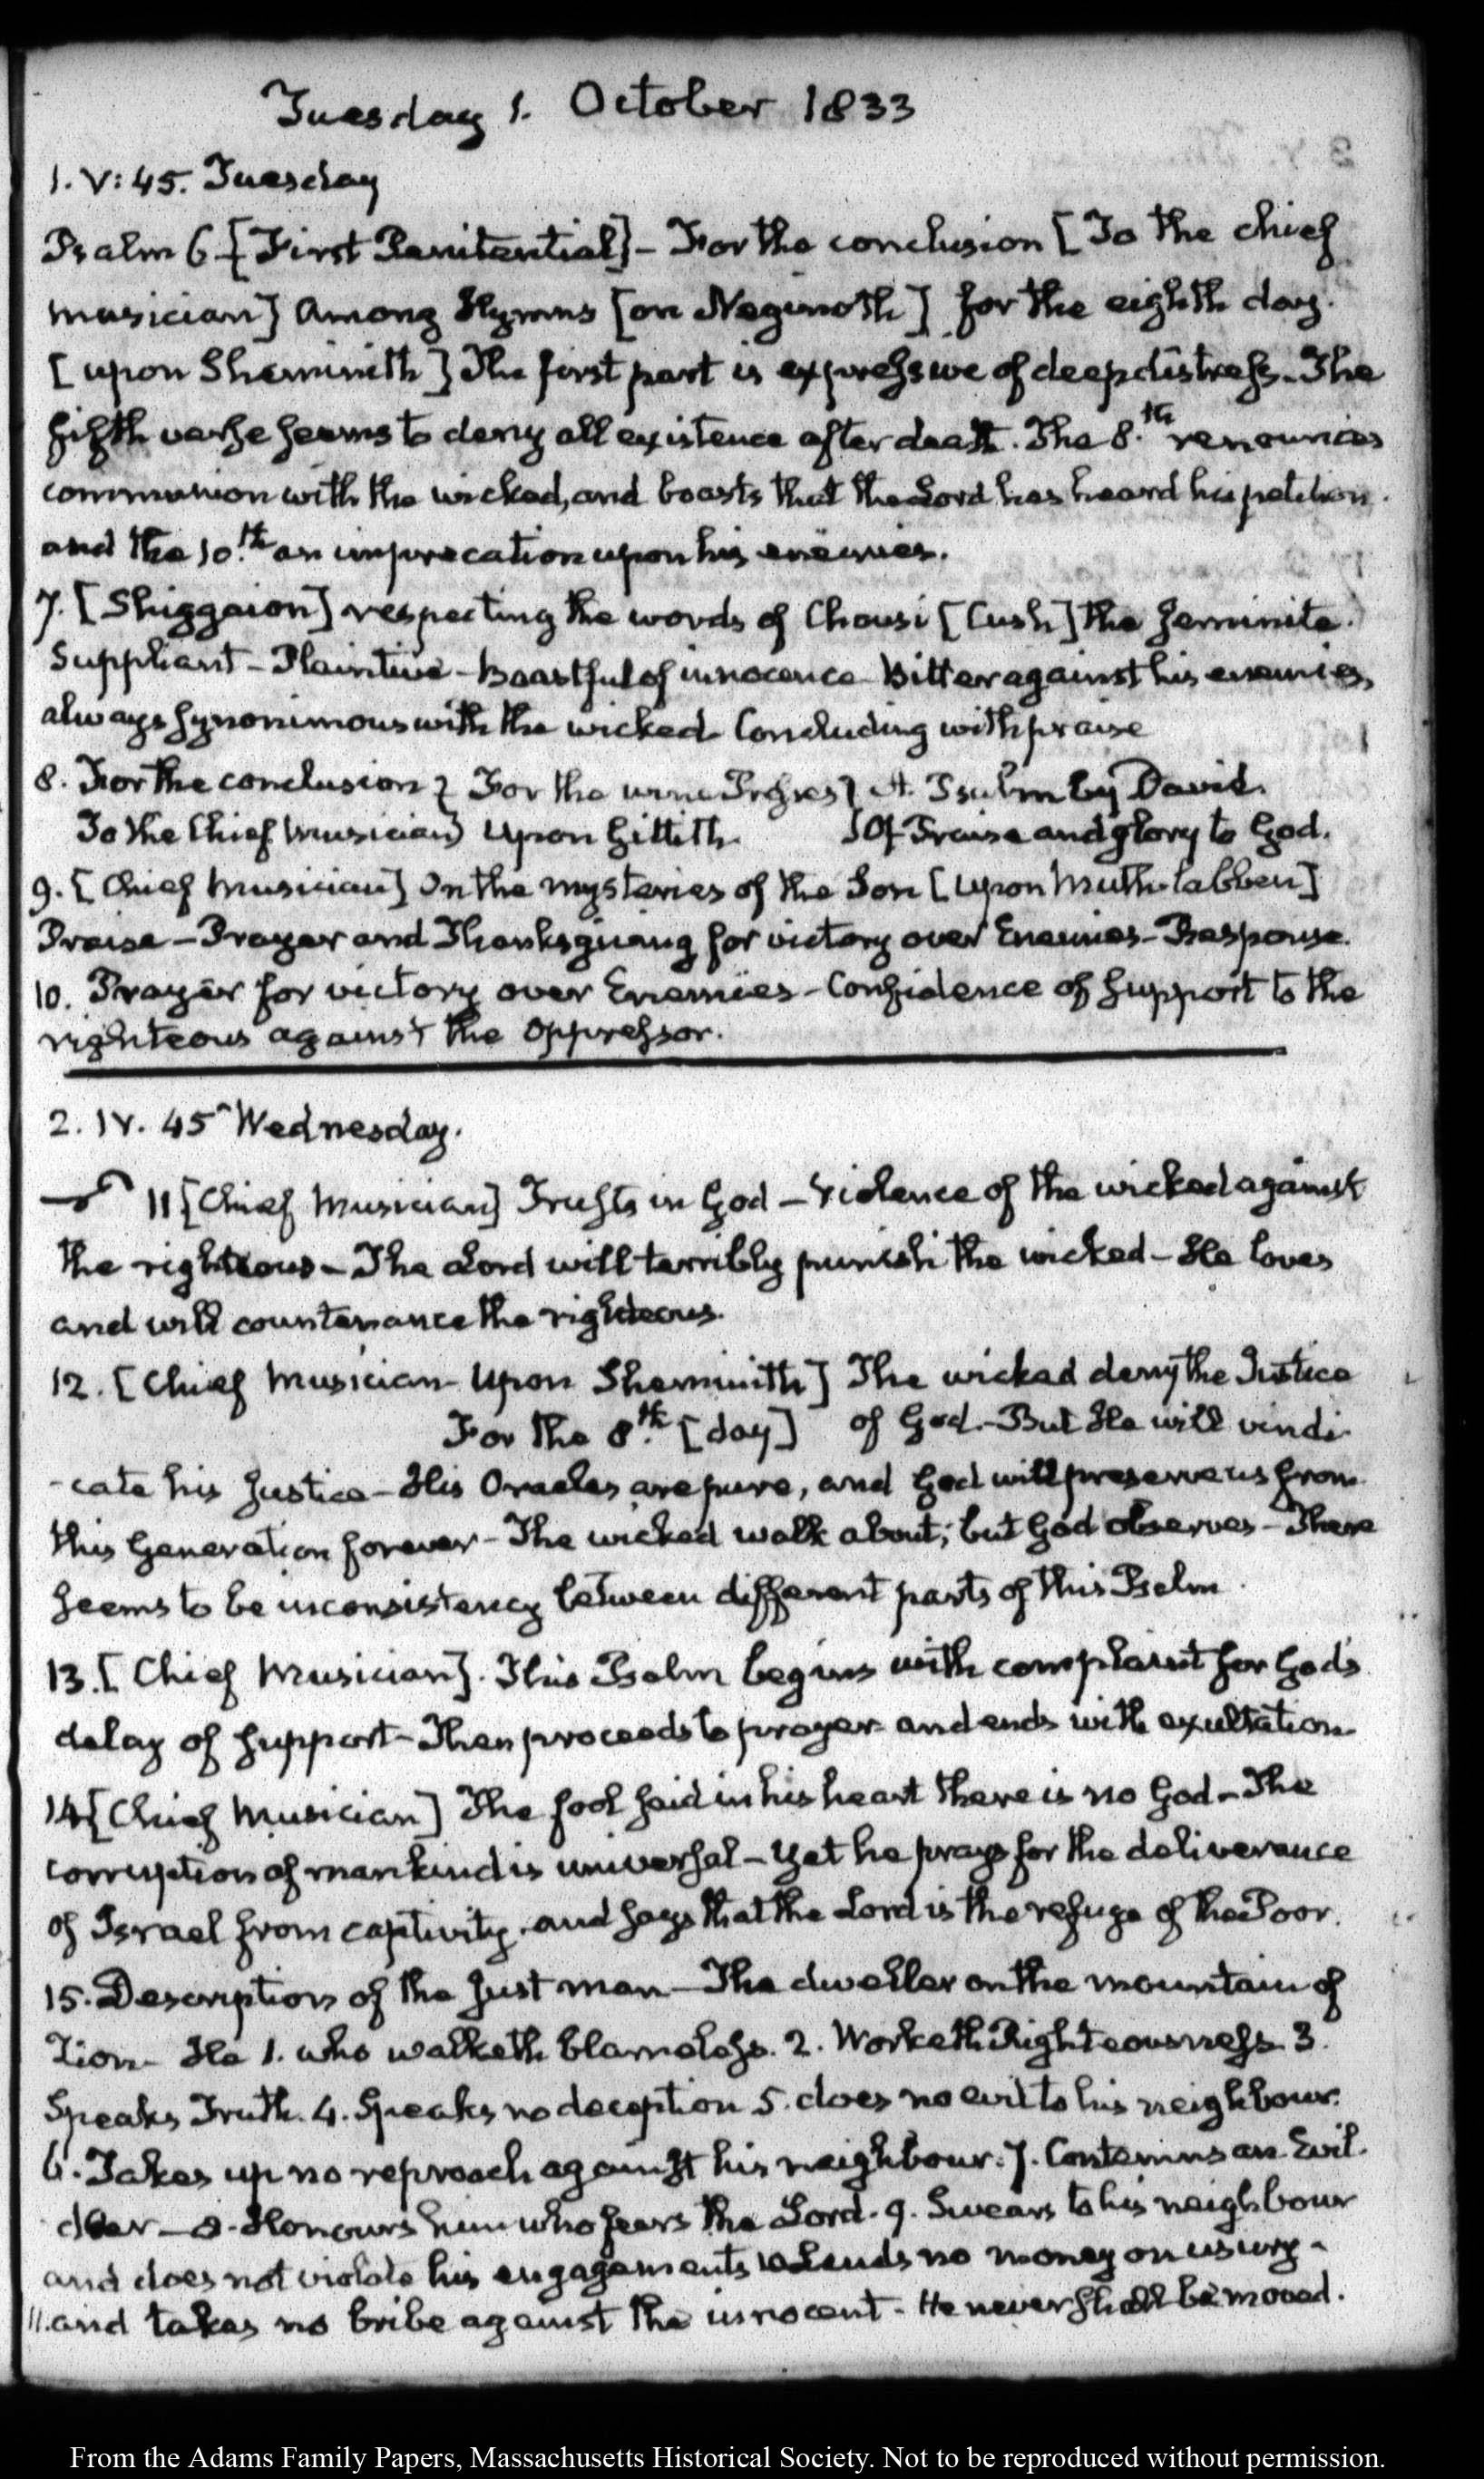 Tuesday 1. October 1833
1. V: 45. Tuesday
Psalm 6 [First Penitential] – For the conclusion [To the chief
musician] Among Hymns [on Neginoth] for the eighth day.
[upon Sheminith] The first part is expressive of deep distress – The
fifth verse seems to deny all existence after death. The 8.th renounces
communion with the wicked, and boasts that the Lord has heard his petition.
and the 10.th an imprecation upon his enemies.
7. [Shiggaion] respecting the words of Chousi [Cush] the Jeminite.
Suppliant – Plaintive – Boastful of innocence – Bitter against his enemies,
always synonimous with the wicked – Concluding with praise
8. For the conclusion } For the wine Presses } A Psalm by David.
To the Chief Musician} Upon Gittith. } Of Praise and glory to God.
9. [Chief Musician] On the mysteries of the Son [upon Muth-labben]
Praise – Prayer and Thanksgiving for victory over Enemies – Response.
10. Prayer for victory over Enemies – Confidence of support to the
righteous against the Oppressor.
2. IV. 45 Wednesday.
11 [Chief Musician] Trusts in God – Violence of the wicked against
the righteous – The Lord will terribly punish the wicked – He loves
and will countenance the righteous.
12. [Chief Musician – Upon Sheminith] The wicked deny the Justice
For the 8.th [day] of God. – But He will vindi-
-cate his Justice – His Oracles are pure, and God will preserve us from
this Generation forever – The wicked walk about; but God observes – There
seems to be inconsistency between different parts of this Psalm.
13. [Chief Musician]. This Psalm begins with complaint for God's
delay of support – Then proceeds to prayer and ends with exultation
14 [Chief Musician] The fool said in his heart there is no God – The
corruption of mankind is universal – Yet he prays for the deliverance
of Israel from captivity, and says that the Lord is the refuge of the Poor.
15. Description of the Just man – The dweller on the mountain of
Zion – He 1. who walketh blameless. 2. Worketh Righteousness 3.
Speaks Truth. 4. Speaks no deception 5. does no evil to his neighbour.
6. Takes up no reproach against his neighbour. 7. Contemns an Evil-
doer – 8. Honours him who fears the Lord. 9. Swears to his neighbour
and does not violate his engagements 10 Lends no money on usury –
11. and takes no bribe against the innocent – He never shall be moved.
From the Adams Family Papers, Massachusetts Historical Society. Not to be reproduced without permission.